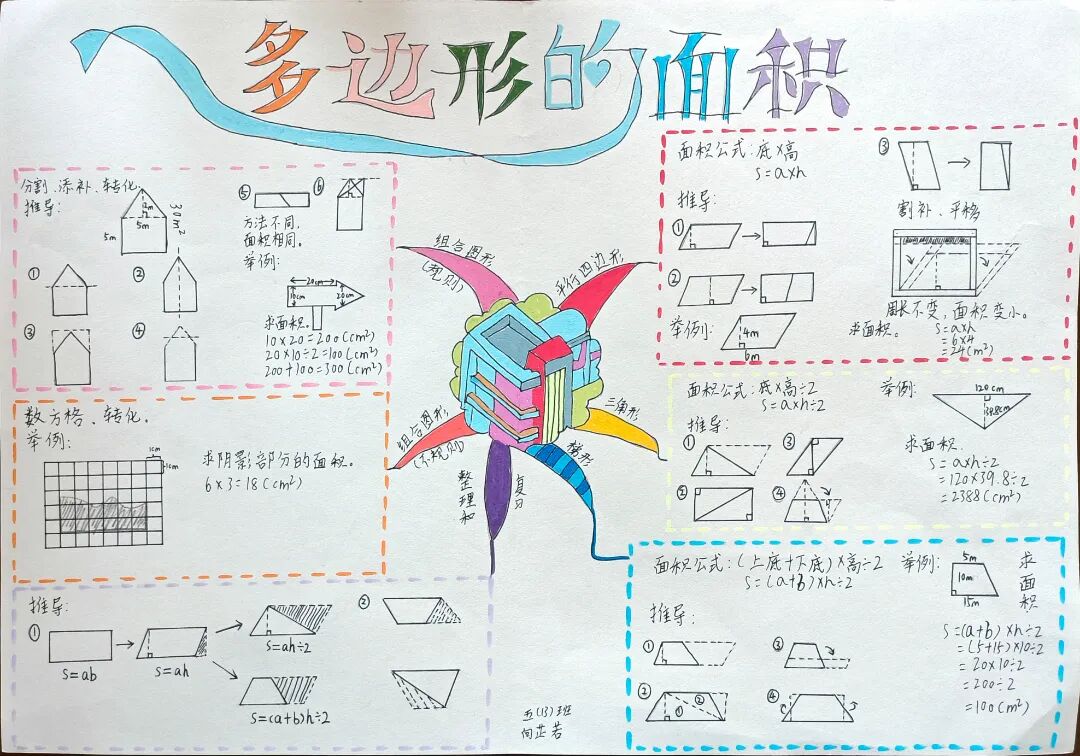 多边形的面积
分割、添补、转化。
推导:
2m
5m
5m
30m²
①
②
③
④
⑤
⑥
方法不同,
面积相同。
举例:
20cm
10cm
20cm
求面积。
10×20=200(cm²)
20×10÷2=100(cm²)
200+100=300(cm²)
数方格、转化。
举例:
1cm
1cm
求阴影部分的面积。
6×3=18(cm²)
推导:
①
S=ab
S=ah
S=ah÷2
S=(a+b)h÷2
②
组合图形
(规则)
平行四边形
三角形
梯形
整理和
复习
组合图形
(不规则)
面积公式:底×高
S=a×h
推导:
①
②
③
割补、平移
周长不变,面积变小。
举例:
4m
6m
求面积。
S=a×h
=6×4
=24(m²)
面积公式:底×高÷2
S=a×h÷2
推导:
①
②
③
④
举例:
120cm
39.8cm
求面积.
S=a×h÷2
=120×39.8÷2
=2388(cm²)
面积公式:(上底+下底)×高÷2
S=(a+b)×h÷2
推导:
①
②
①
②
③
④
举例:
5m
10m
15m
求面积
S=(a+b)×h÷2
=(5+15)×10÷2
=20×10÷2
=200÷2
=100(m²)
五(13)班
向芷若